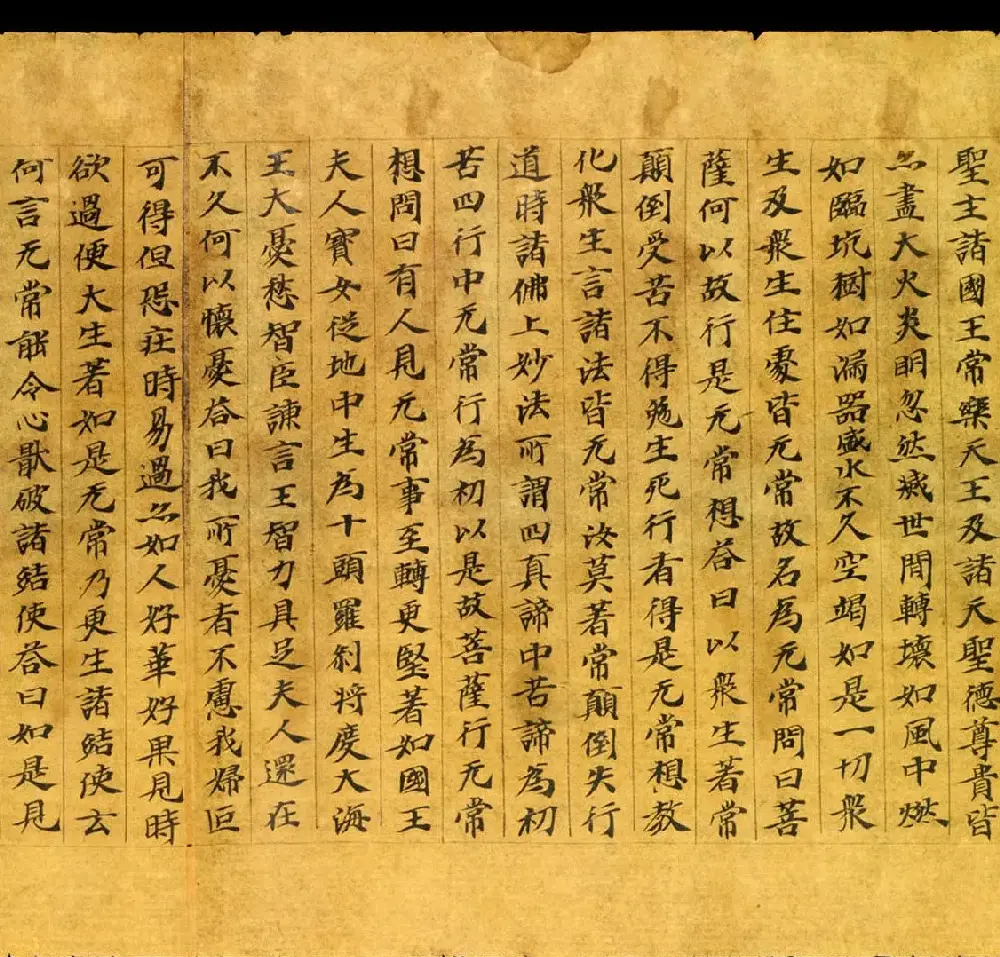 聖主諸國王常樂天王及諸天聖德尊貴皆
亦盡大火炎明忽然滅世間轉壞如風中燃
如臨坑樹如漏器盛水不久空竭如是一切衆
生及衆生住處皆无常故名為无常問曰菩
薩何以故行是无常想荅曰以衆生著常
顛倒受苦不得免生死行者得是无常想教
化衆生言諸法皆无常汝莫著常顛倒失行
道時諸佛上妙法所謂四真諦中苦諦為初
苦四行中无常行為初以是故菩薩行无常
想問曰有人見无常事至轉更堅著如國王
夫人寶女從地中生為十頭羅刹將度大海
王大憂愁智臣諫言王智力具足夫人還在
不久何以懷憂荅曰我所憂者不慮我婦叵
可得但恐壯時易過亦如人好華好果見時
欲過便大生著如是无常乃更生諸結使云
何言无常能令心猒破諸結使荅曰如是見